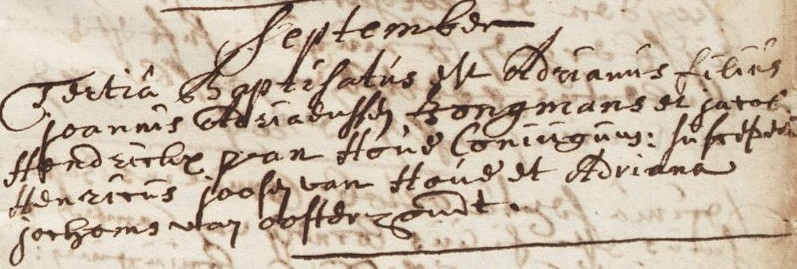 September
Tertia Baptisatus est Adrianus filius
Joannis Adriaenssen Hongmans et Jacob.
Hendrickx van Hove Coniugum: susceper
Henricus Joosen van Hove et Adriana
Jochems van oosterzout.